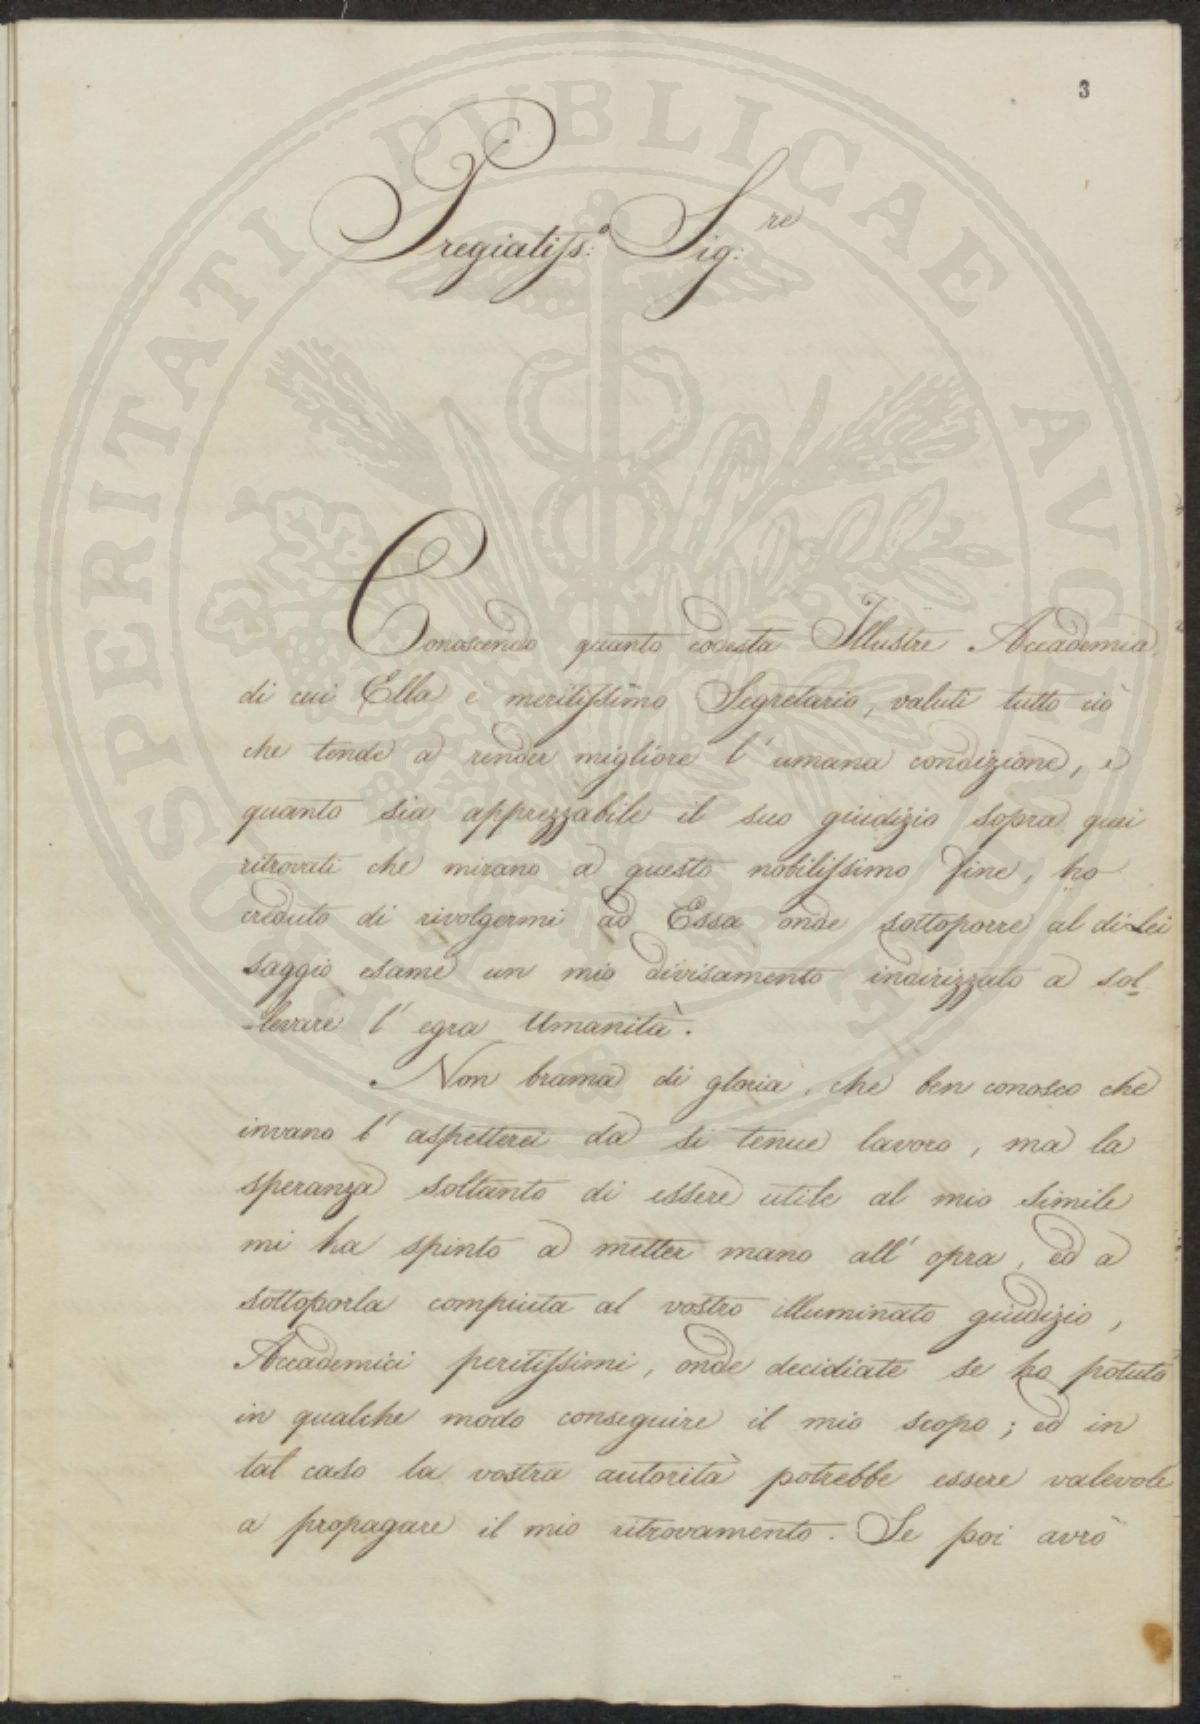 3
Pregiatiss:º Sig:re
Conoscendo quanto codesta Illustre Accademia
di cui Ella è meritissimo Segretario, valuti tutto ciò
che tende a render migliore l'umana condizione, e
quanto sia apprezzabile il suo giudizio sopra quei
ritrovati che mirano a questo nobilissimo fine, ho
creduto di rivolgermi ad Essa onde sottoporre al di Lei
saggio esame un mio divisamento indirizzato a sol-
-levare l'egra Umanità.
Non brama di gloria, che ben conosco che
invano l'aspetterei da si tenue lavoro, ma la
speranza soltanto di essere utile al mio simile
mi ha spinto a metter mano all'opra, ed a
sottoporla compiuta al vostro illuminato giudizio,
Accademici peritissimi, onde decidiate se ho potuto
in qualche modo conseguire il mio scopo; ed in
tal caso la vostra autorità potrebbe essere valevole
a propagare il mio ritrovamento. Se poi avrò
PROSPERITATI PUBLICAE AUGENDAE